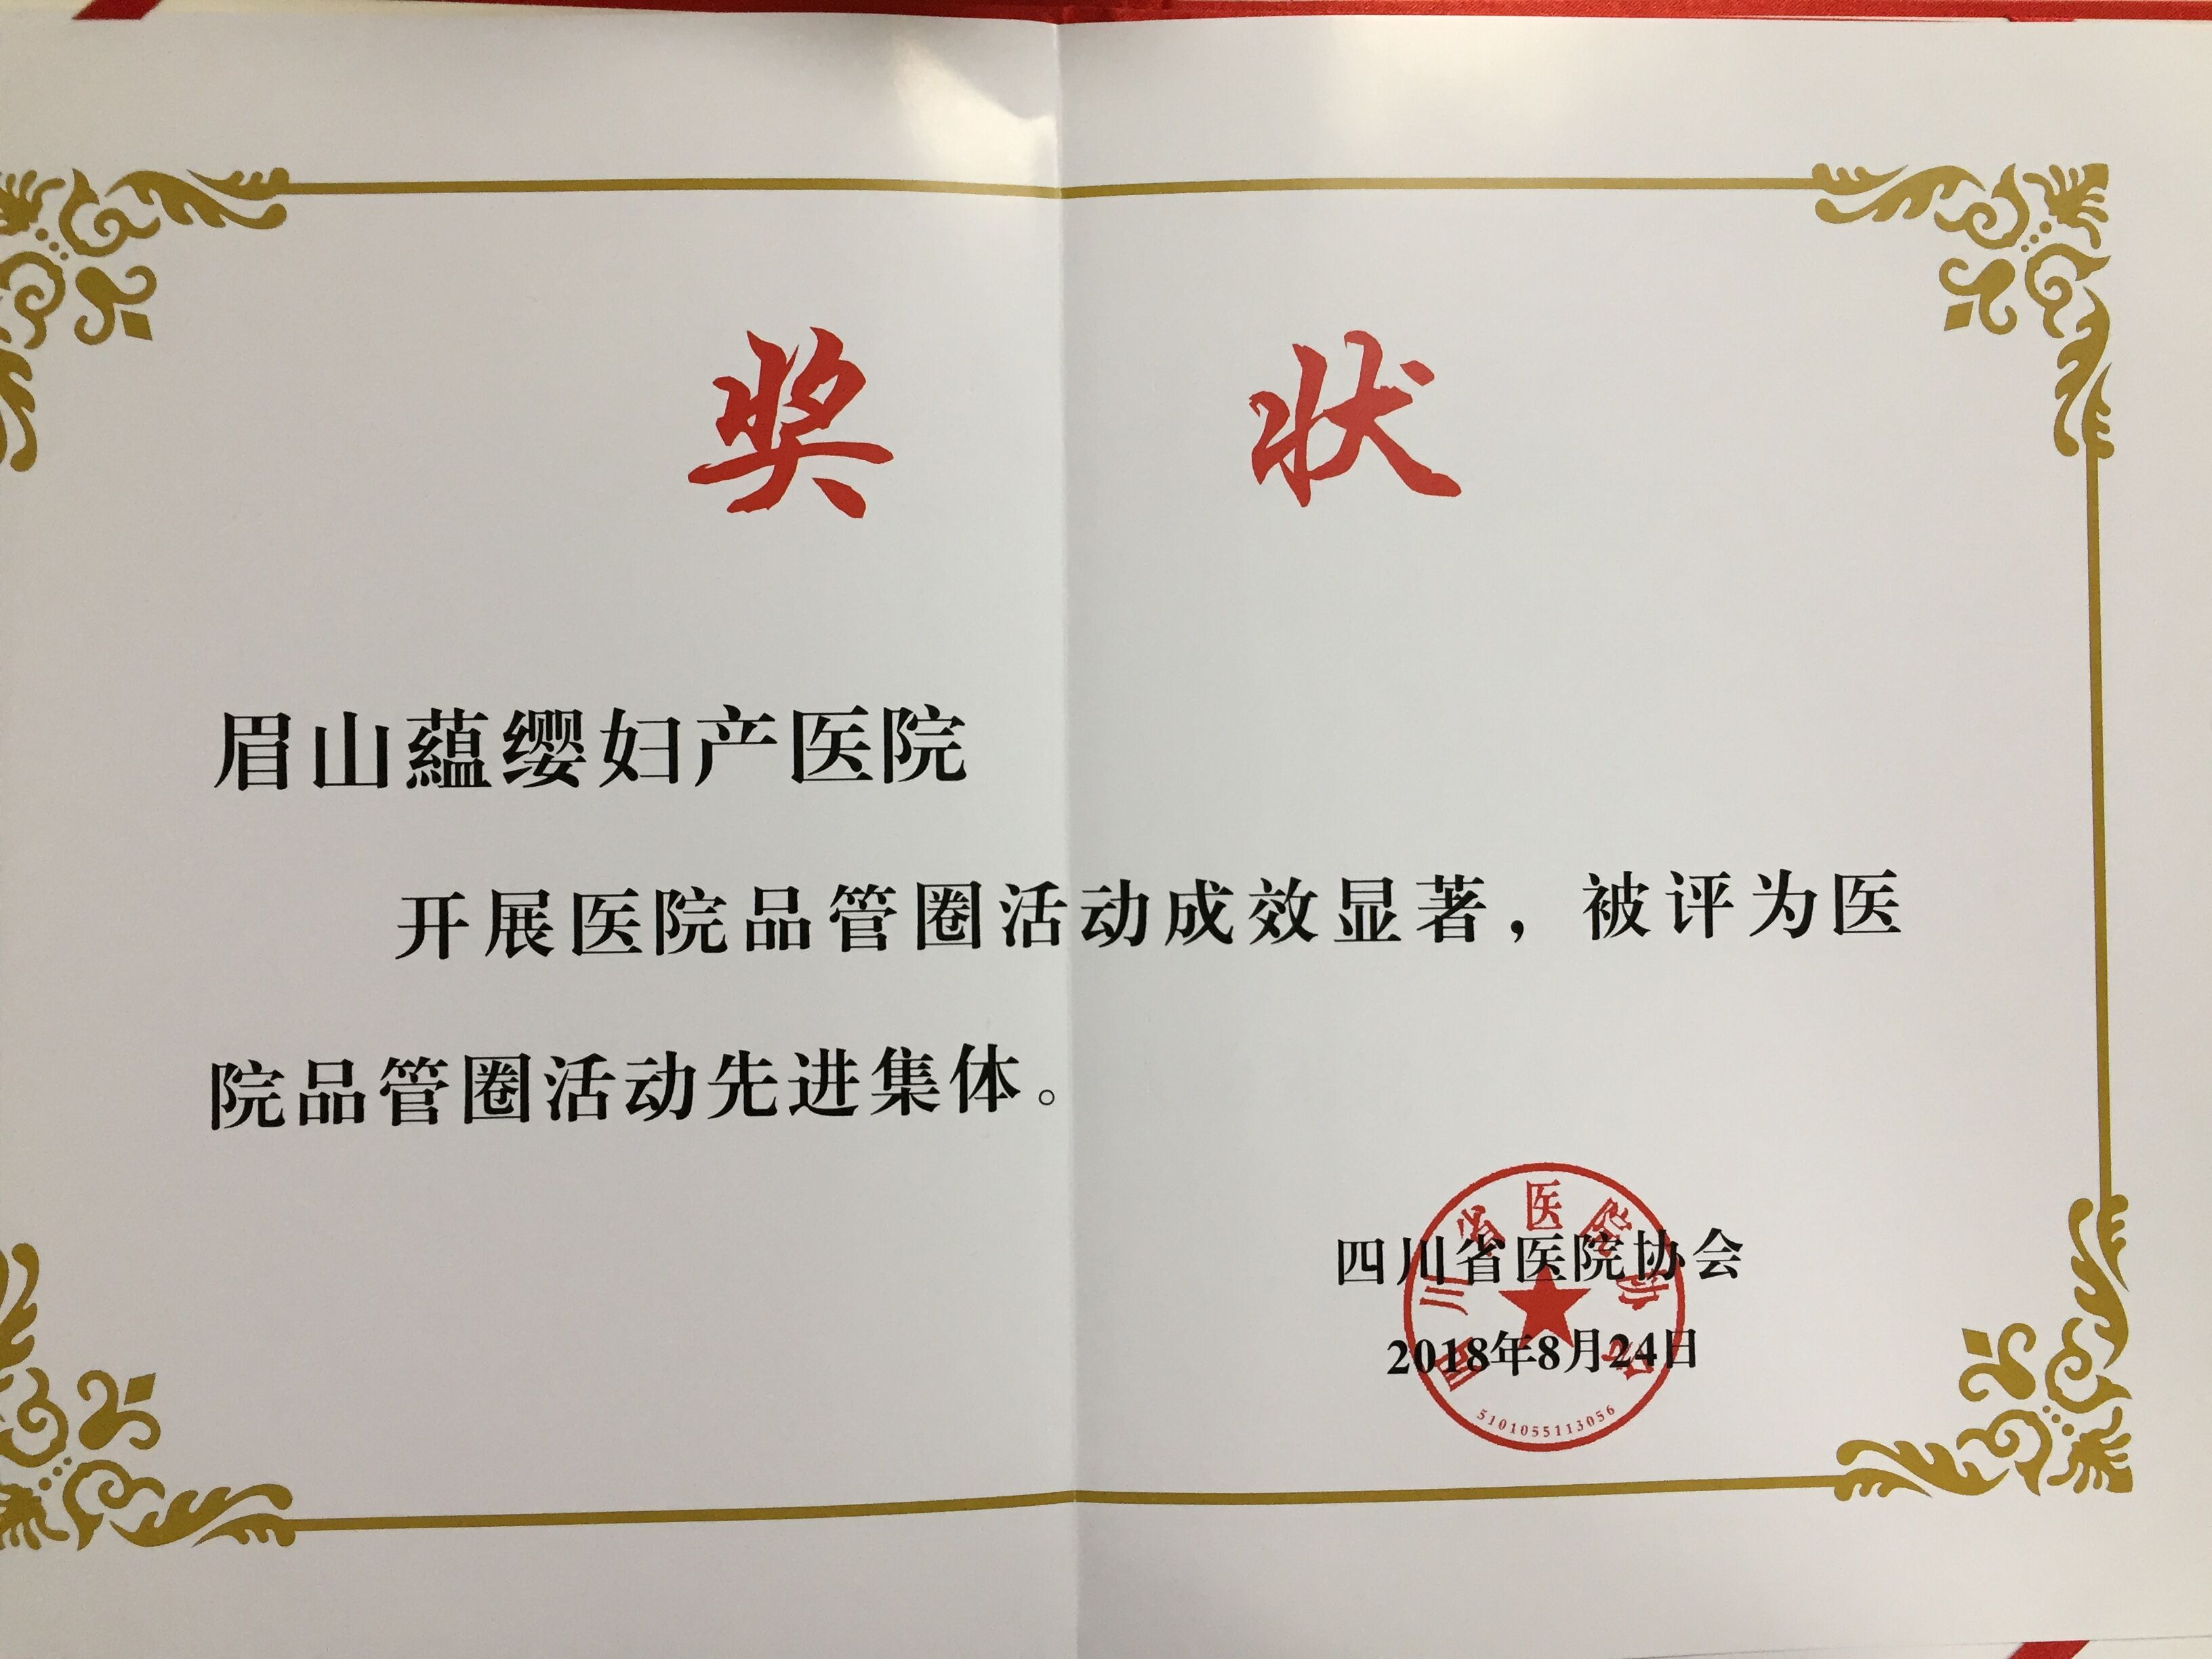 奖 状
眉山蘊缨妇产医院
开展医院品管圈活动成效显著，被评为医
院品管圈活动先进集体。
四川省医院协会
2018年8月24日
四川省医院协会
5101055113056